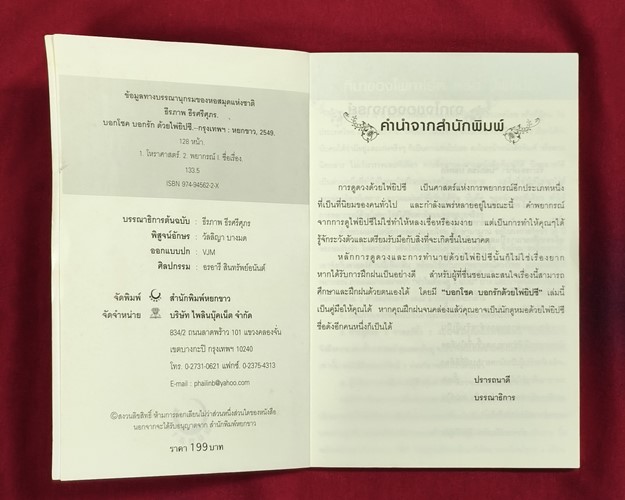 ข้อมูลทางบรรณานุกรมของหอสมุดแห่งชาติ
ธีรภาพ ธีรศรีศุภร.
บอกโชค บอกรัก ด้วยไพ่ยิปซี.--กรุงเทพฯ : หยกขาว, 2549.
128 หน้า.
1. โหราศาสตร์ 2. พยากรณ์ I. ชื่อเรื่อง
133.5
ISBN 974-94562-2-X
บรรณาธิการต้นฉบับ : ธีรภาพ ธีรศรีศุภร
พิสูจน์อักษร : วัลลิญา บางมด
ออกแบบปก : VJM
ศิลปกรรม : อรอารี สินทรัพย์อนันต์
จัดพิมพ์ สำนักพิมพ์หยกขาว
จัดจำหน่าย บริษัท ไพลินบุ๊คเน็ต จำกัด
834/2 ถนนลาดพร้าว 101 แขวงคลองจั่น
เขตบางกะปิ กรุงเทพฯ 10240
โทร. 0-2731-0621 แฟกซ์. 0-2375-4313
E-mail : phailinb@yahoo.com
©สงวนลิขสิทธิ์ ห้ามการลอกเลียนไม่ว่าส่วนหนึ่งส่วนใดของหนังสือ
นอกจากจะได้รับอนุญาตจาก สำนักพิมพ์หยกขาว
ราคา 199 บาท
คำนำจากสำนักพิมพ์
การดูดวงด้วยไพ่ยิปซี เป็นศาสตร์แห่งการพยากรณ์อีกประเภทหนึ่ง
ที่เป็นที่นิยมของคนทั่วไป และกำลังแพร่หลายอยู่ในขณะนี้ คำพยากรณ์
จากการดูไพ่ยิปซีไม่ใช่ทำให้หลงเชื่อหรืองมงาย แต่เป็นการทำให้คุณๆได้
รู้จักระวังตัวและเตรียมรับมือกับสิ่งที่จะเกิดขึ้นในอนาคต
หลักการดูดวงและการทำนายด้วยไพ่ยิปซีนั้นก็ไม่ใช่เรื่องยาก
หากได้รับการฝึกฝนเป็นอย่างดี สำหรับผู้ที่ชื่นชอบและสนใจเรื่องนี้สามารถ
ศึกษาและฝึกฝนด้วยตนเองได้ โดยมี "บอกโชค บอกรักด้วยไพ่ยิปซี" เล่มนี้
เป็นคู่มือให้คุณได้ หากคุณฝึกฝนจนคล่องแล้วคุณอาจเป็นนักดูหมอด้วยไพ่ยิปซี
ชื่อดังอีกคนหนึ่งก็เป็นได้
ปรารถนาดี
บรรณาธิการ